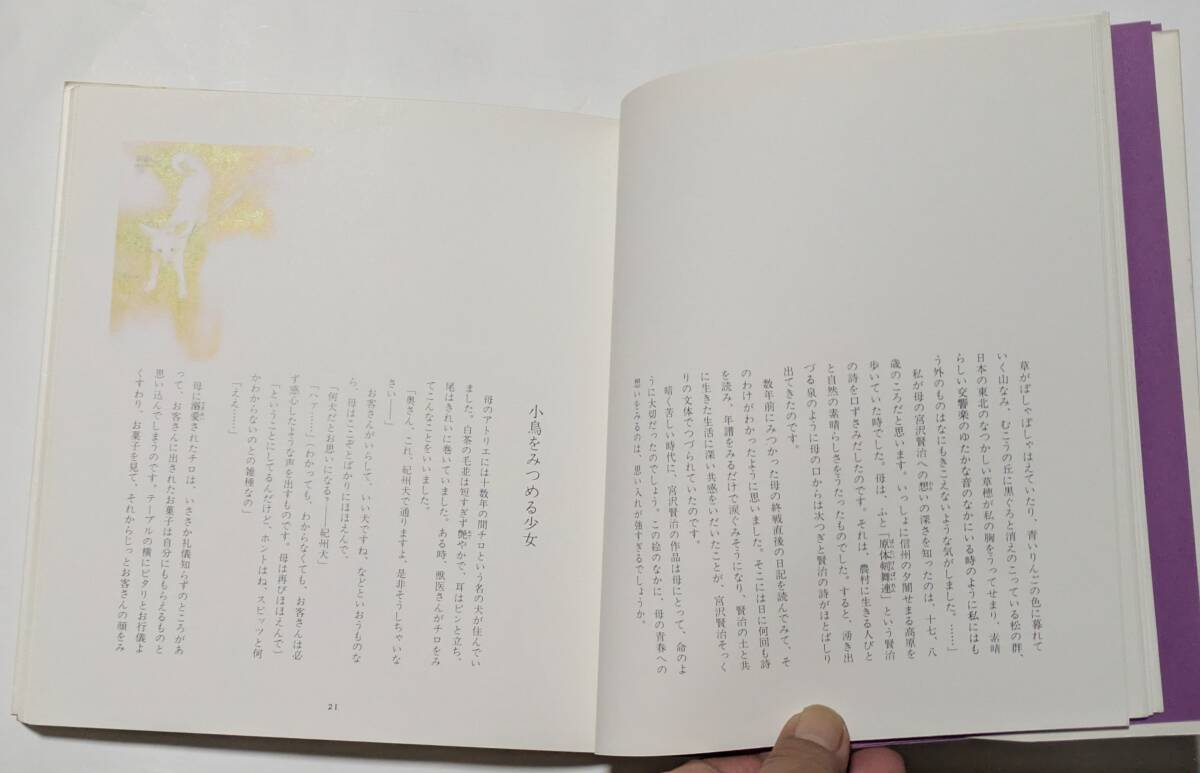 草がぼしゃぼしゃはえていたり、青いりんごの色に暮れて
いく山なみ、むこうの丘に黒ぐろと消えのこっている松の群、
日本の東北のなつかしい草穂が私の胸をうってせまり、素晴
らしい交響楽のゆたかな音のなかにいる時のように私にはも
う外のものはなにもきこえないような気がしました。……」
私が母の宮沢賢治への想いの深さを知ったのは、十七、八
歳のころだと思います。いっしょに信州の夕闇せまる高原を
歩いていた時でした。母は、ふと「原体剣舞連」という賢治
の詩を口ずさみだしたのです。それは、農村に生きる人びと
と自然の素晴らしさをうたったものでした。すると、湧き出
づる泉のように母の口からは次つぎと賢治の詩がほとばしり
出てきたのです。
数年前にみつかった母の終戦直後の日記を読んでみて、そ
のわけがわかったように思いました。そこには日に何回も詩
を読み、年譜をみるだけで涙ぐみそうになり、賢治の土と共
に生きた生活に深い共感をいだいたことが、宮沢賢治そっく
りの文体でつづられていたのです。
暗く苦しい時代に、宮沢賢治の作品は母にとって、命のよ
うに大切だったのでしょう。この絵のなかに、母の青春への
想いをみるのは、思い入れが強すぎるでしょうか。
小鳥をみつめる少女
母のアトリエには十数年の間チロという名の犬が住んでい
ました。白茶の毛並は短すぎず艶やかで、耳はピンと立ち、
尾はきれいに巻いていました。ある時、獣医さんがチロをみ
てこんなことをいいました。
「奥さん、これ、紀州犬で通りますよ、是非そうしちゃいな
さい――」
お客さんがいらして、いい犬ですね、などといおうものな
ら、母はここぞとばかりにほほえんで、
「何犬だとお思いになる? ――紀州犬」
「ハァー……」わかっても、わからなくても、お客さんは必
ず感心したような声を出すものです。母は再びほほえんで
「ということにしてるんだけど、ホントはね、スピッツと何
かわからないのとの雑種なの」
「ええ……」
母に溺愛されたチロは、いささか礼儀知らずのところがあ
って、お客さんに出されたお菓子は自分にももらえるものと
思い込んでしまうのです。テーブルの横にピタリとお行儀よ
くすわり、お菓子を見て、それからじっとお客さんの顔をみ
21